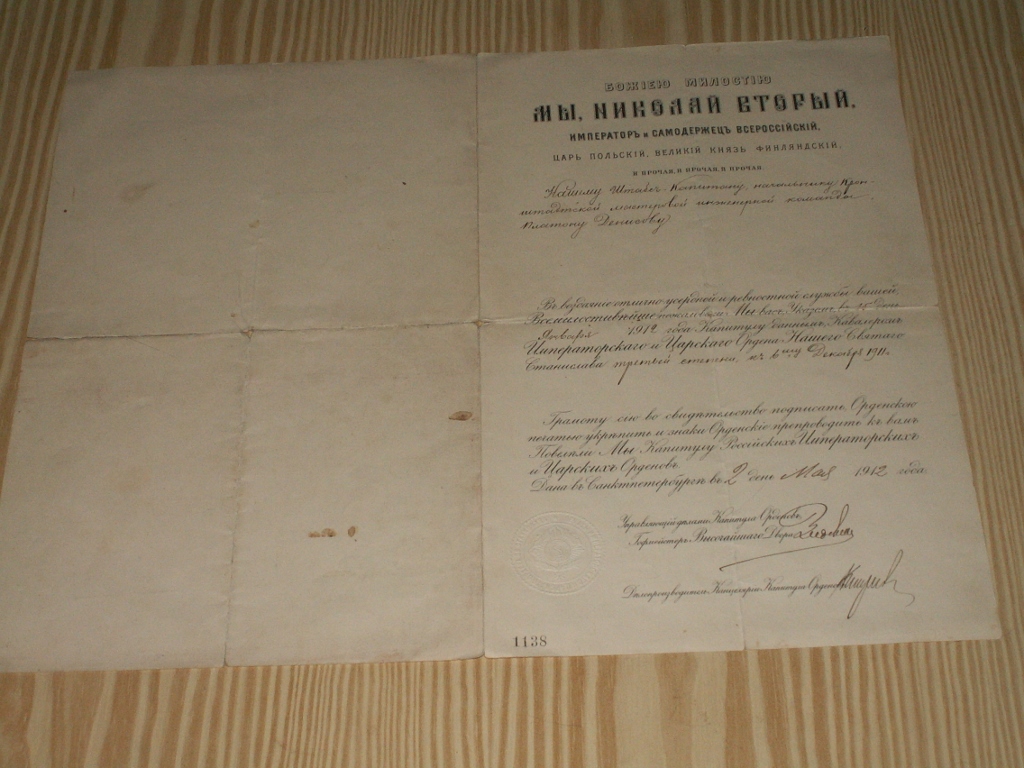 БОЖІЕЮ МИЛОСТІЮ
МЫ, НИКОЛАЙ ВТОРЫЙ,
ИМПЕРАТОРЪ и САМОДЕРЖЕЦЪ ВСЕРОССІЙСКІЙ,
ЦАРЬ ПОЛЬСКІЙ, ВЕЛИКІЙ КНЯЗЬ ФИНЛЯНДСКІЙ,
И ПРОЧАЯ, И ПРОЧАЯ, И ПРОЧАЯ.
Нашему Штабсъ-Капитану, начальнику Крон-
штадтской инженерной команды
Платону Денисову
Въ воздаяніе отлично усердной и ревностной службы вашей,
Всемилостивѣйше пожаловали Мы васъ Указомъ въ день
Января 1912 года Капитулу даннымъ, Кавалеромъ
Императорскаго и Царскаго Ордена Нашего Святаго
Станислава третьей степени, съ 6го Декабря 1911г.
Грамоту сію во свидѣтельство подписать, Орденскою
печатью укрѣпить и знаки Орденскіе препроводить къ вамъ
Повелѣли Мы Капитулу Россійскихъ Императорскихъ
и Царскихъ Орденовъ.
Дана въ Санктпетербургѣ въ 2 день Мая 1912 года.
Управляющій дѣлами Капитула Орденовъ,
Гофмейстеръ Высочайшаго Двора
Дѣлопроизводитель Канцеляріи Капитула Орденовъ
1138